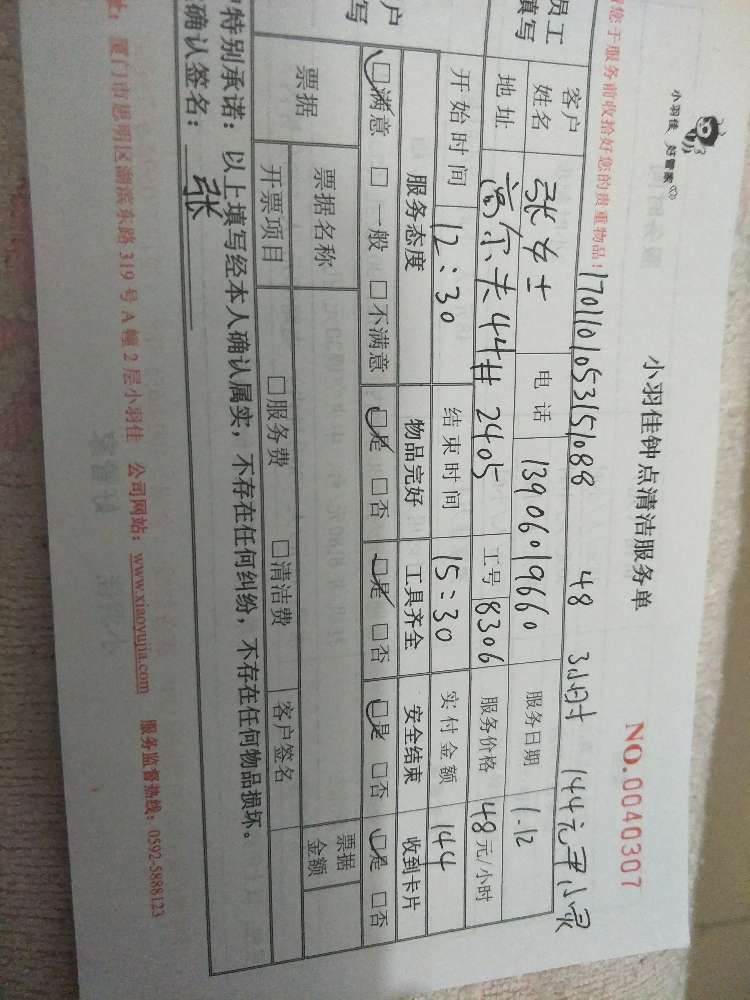 小羽佳 好管家
小羽佳钟点清洁服务单
NO.0040307
您于服务前收拾好您的贵重物品！
1701101053151088 48 3小时 144元 尹小家
员工填写
客户姓名 张女士 电话 13906019660 服务日期 1.12
地址 高尔夫44# 2405 工号 8306 服务价格 48元/小时
开始时间 12:30 结束时间 15:30 实付金额 144
户
写
服务态度 物品完好 工具齐全 安全结束 收到卡片
□满意 □一般 □不满意 □是 □否 □是 □否 □是 □否 □是 □否
票据 票据名称 票据金额
开票项目 □服务费 □清洁费 客户签名
特别承诺：以上填写经本人确认属实，不存在任何纠纷，不存在任何物品损坏。
确认签名：张
厦门市思明区湖滨东路319号A幢2层小羽佳 公司网站：www.xiaoyujia.com 服务监督热线：0592-5888123